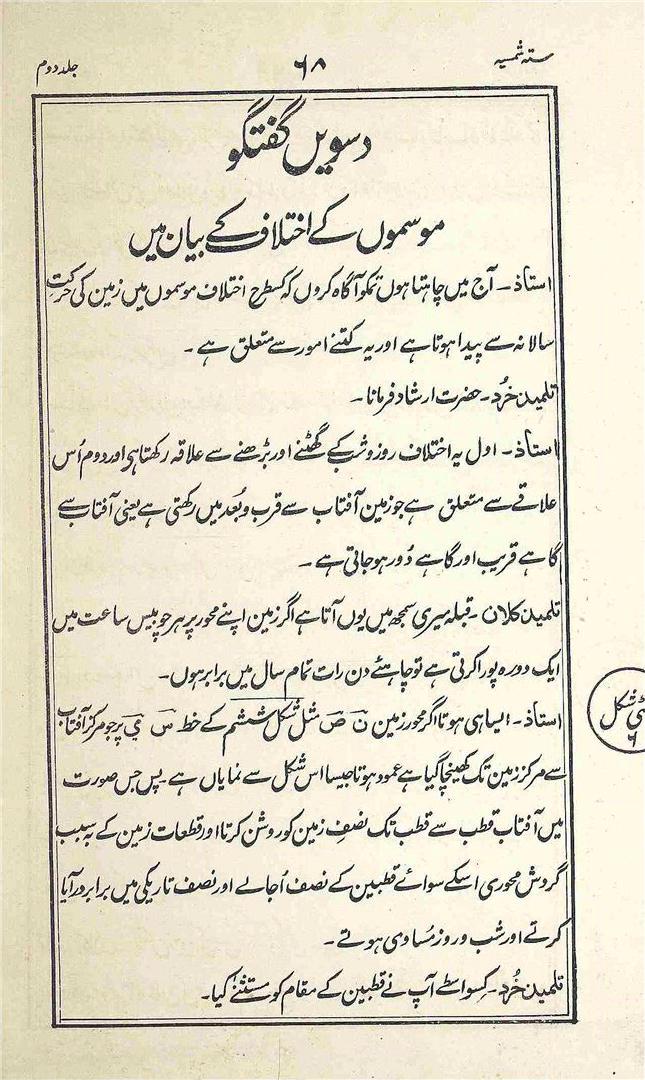 ستہ شمسیہ ۶۸ جلد دوم
دسویں گفتگو
موسموں کے اختلاف کے بیان میں
استاذ۔ آج میں چاہتا ہوں تمکو آگاہ کروں کہ کسطرح اختلاف موسموں میں زمین کی حرکت
سالانہ سے پیدا ہوتا ہے اور یہ کتنے امور سے متعلق ہے۔
تلمیذ خُرد۔ حضرت ارشاد فرمانا۔
استاذ۔ اول یہ اختلاف روز و شب کے گھٹنے اور بڑھنے سے علاقہ رکھتا ہی اور دوم اُس
علاقے سے متعلق ہے جو زمین آفتاب سے قرب و بُعد میں رکھتی ہے یعنی آفتاب سے
گاہے قریب اور گاہے دُور ہو جاتی ہے۔
تلمیذ کلان۔ قبلہ میری سمجھ میں یوں آتا ہے اگر زمین اپنے محور پر ہر چوبیس ساعت میں
ایک دورہ پورا کرتی ہے تو چاہئے دن رات تمام سال میں برابر ہوں۔
استاذ۔ ایسا ہی ہوتا اگر محور زمین نَ صَ مثل شکل ششم کے خط سَ يَ پر جو مرکز آفتاب
سے مرکز زمین تک کھینچا گیا ہے عمود ہوتا جیسا اس شکل سے نمایاں ہے۔ پس جس صورت
میں آفتاب قطب سے قطب تک نصف زمین کو روشن کرتا اور قطعات زمین کے بہ سبب
گردش محوری اسکے سوائے قطبین کے نصف اُجالے اور نصف تاریکی میں برابر در آیا
کرتے اور شب و روز مُساوی ہوتے۔
تلمیذ خُرد۔ کسواسطے آپ نے قطبین کے مقام کو مستثنےٰ کیا۔
شکل
۶